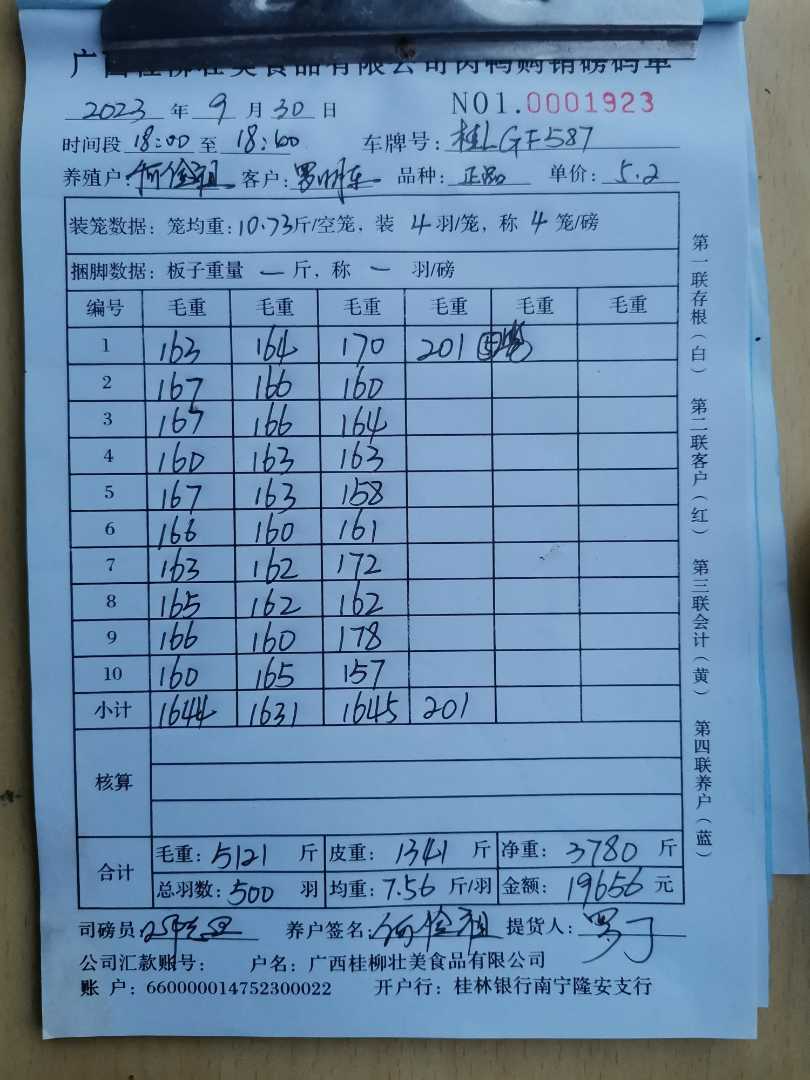 广西桂柳壮美食品有限公司肉鸭购销磅码单
2023 年 9 月 30 日 NO1.0001923
时间段 18:00 至 18:60 车牌号: 桂LGF587
养殖户: 何俭祖 客户: 罗明东 品种: 正品 单价: 5.2
装笼数据: 笼均重: 10.73斤/空笼, 装 4 羽/笼, 称 4 笼/磅
捆脚数据: 板子重量 一 斤, 称 一 羽/磅
编号 毛重 毛重 毛重 毛重 毛重 毛重
1 163 164 170 201 ⑤
2 167 166 160
3 167 166 164
4 160 163 163
5 167 163 158
6 166 160 161
7 163 162 172
8 165 162 162
9 166 160 178
10 160 165 157
小计 1644 1631 1645 201
核算
合计
毛重: 5121 斤 皮重: 1341 斤 净重: 3780 斤
总羽数: 500 羽 均重: 7.56 斤/羽 金额: 19656 元
司磅员: 养户签名: 何俭祖 提货人: 罗
公司汇款账号: 户名: 广西桂柳壮美食品有限公司
账 户: 660000014752300022 开户行: 桂林银行南宁隆安支行
第一联存根(白) 第二联客户(红) 第三联会计(黄) 第四联养户(蓝)